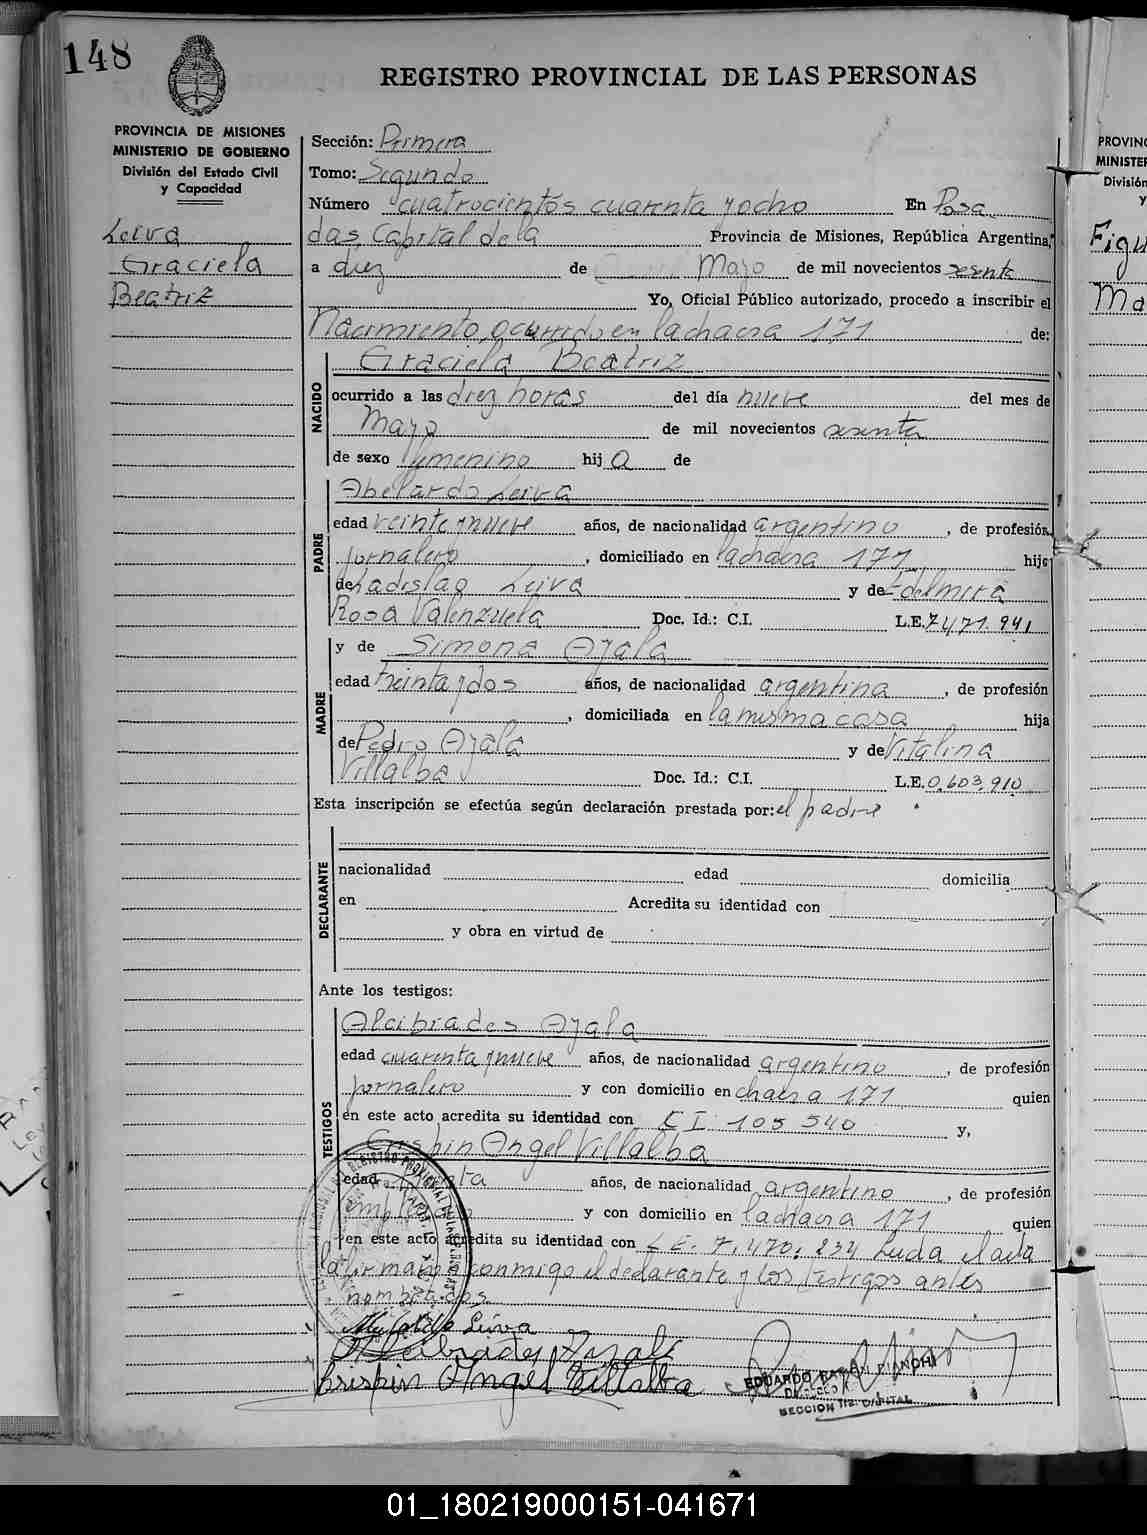 148
REGISTRO PROVINCIAL DE LAS PERSONAS
PROVINCIA DE MISIONES
MINISTERIO DE GOBIERNO
División del Estado Civil
y Capacidad
Leiva
Graciela
Beatriz
Sección: Primera
Tomo: Segundo
Número cuatrocientos cuarenta y ocho En Posa
das, Capital de la Provincia de Misiones, República Argentina,
a diez de Mayo de mil novecientos sesenta
Yo, Oficial Público autorizado, procedo a inscribir el
Nacimiento, ocurrido en la chacra 171 de:
NACIDO
Graciela Beatriz
ocurrido a las diez horas del día nueve del mes de
Mayo de mil novecientos sesenta
de sexo femenino hij a de
PADRE
Abelardo Leiva
edad veinte y nueve años, de nacionalidad argentino, de profesión
jornalero, domiciliado en la chacra 171 hijo
de Ladislao Leiva y de Edelmira
Rosa Valenzuela Doc. Id.: C.I. L.E. 7.471.941
MADRE
y de Simona Ayala
edad treinta y dos años, de nacionalidad argentina, de profesión
, domiciliada en la misma casa hija
de Pedro Ayala y de Vitalina
Villalba Doc. Id.: C.I. L.E. 0.603.910
Esta inscripción se efectúa según declaración prestada por: el padre
DECLARANTE
nacionalidad edad domicilia
en Acredita su identidad con
y obra en virtud de
Ante los testigos:
TESTIGOS
Alcibiades Ayala
edad cuarenta y nueve años, de nacionalidad argentino, de profesión
jornalero y con domicilio en chacra 171 quien
en este acto acredita su identidad con C I. 105 540 y,
Crispin Angel Villalba
edad años, de nacionalidad argentino, de profesión
y con domicilio en la chacra 171 quien
en este acto acredita su identidad con L E. 7.470.234 Leida el acta
la firman conmigo el declarante y los testigos antes
nombrados
Leiva
Alcibiades Ayala
Crispin Angel Villalba
EDUARDO RAMON BIANCHI
SECCION 1ra. CAPITAL
PROVINC
MINISTER
División
y
Figu
Ma
01_180219000151-041671